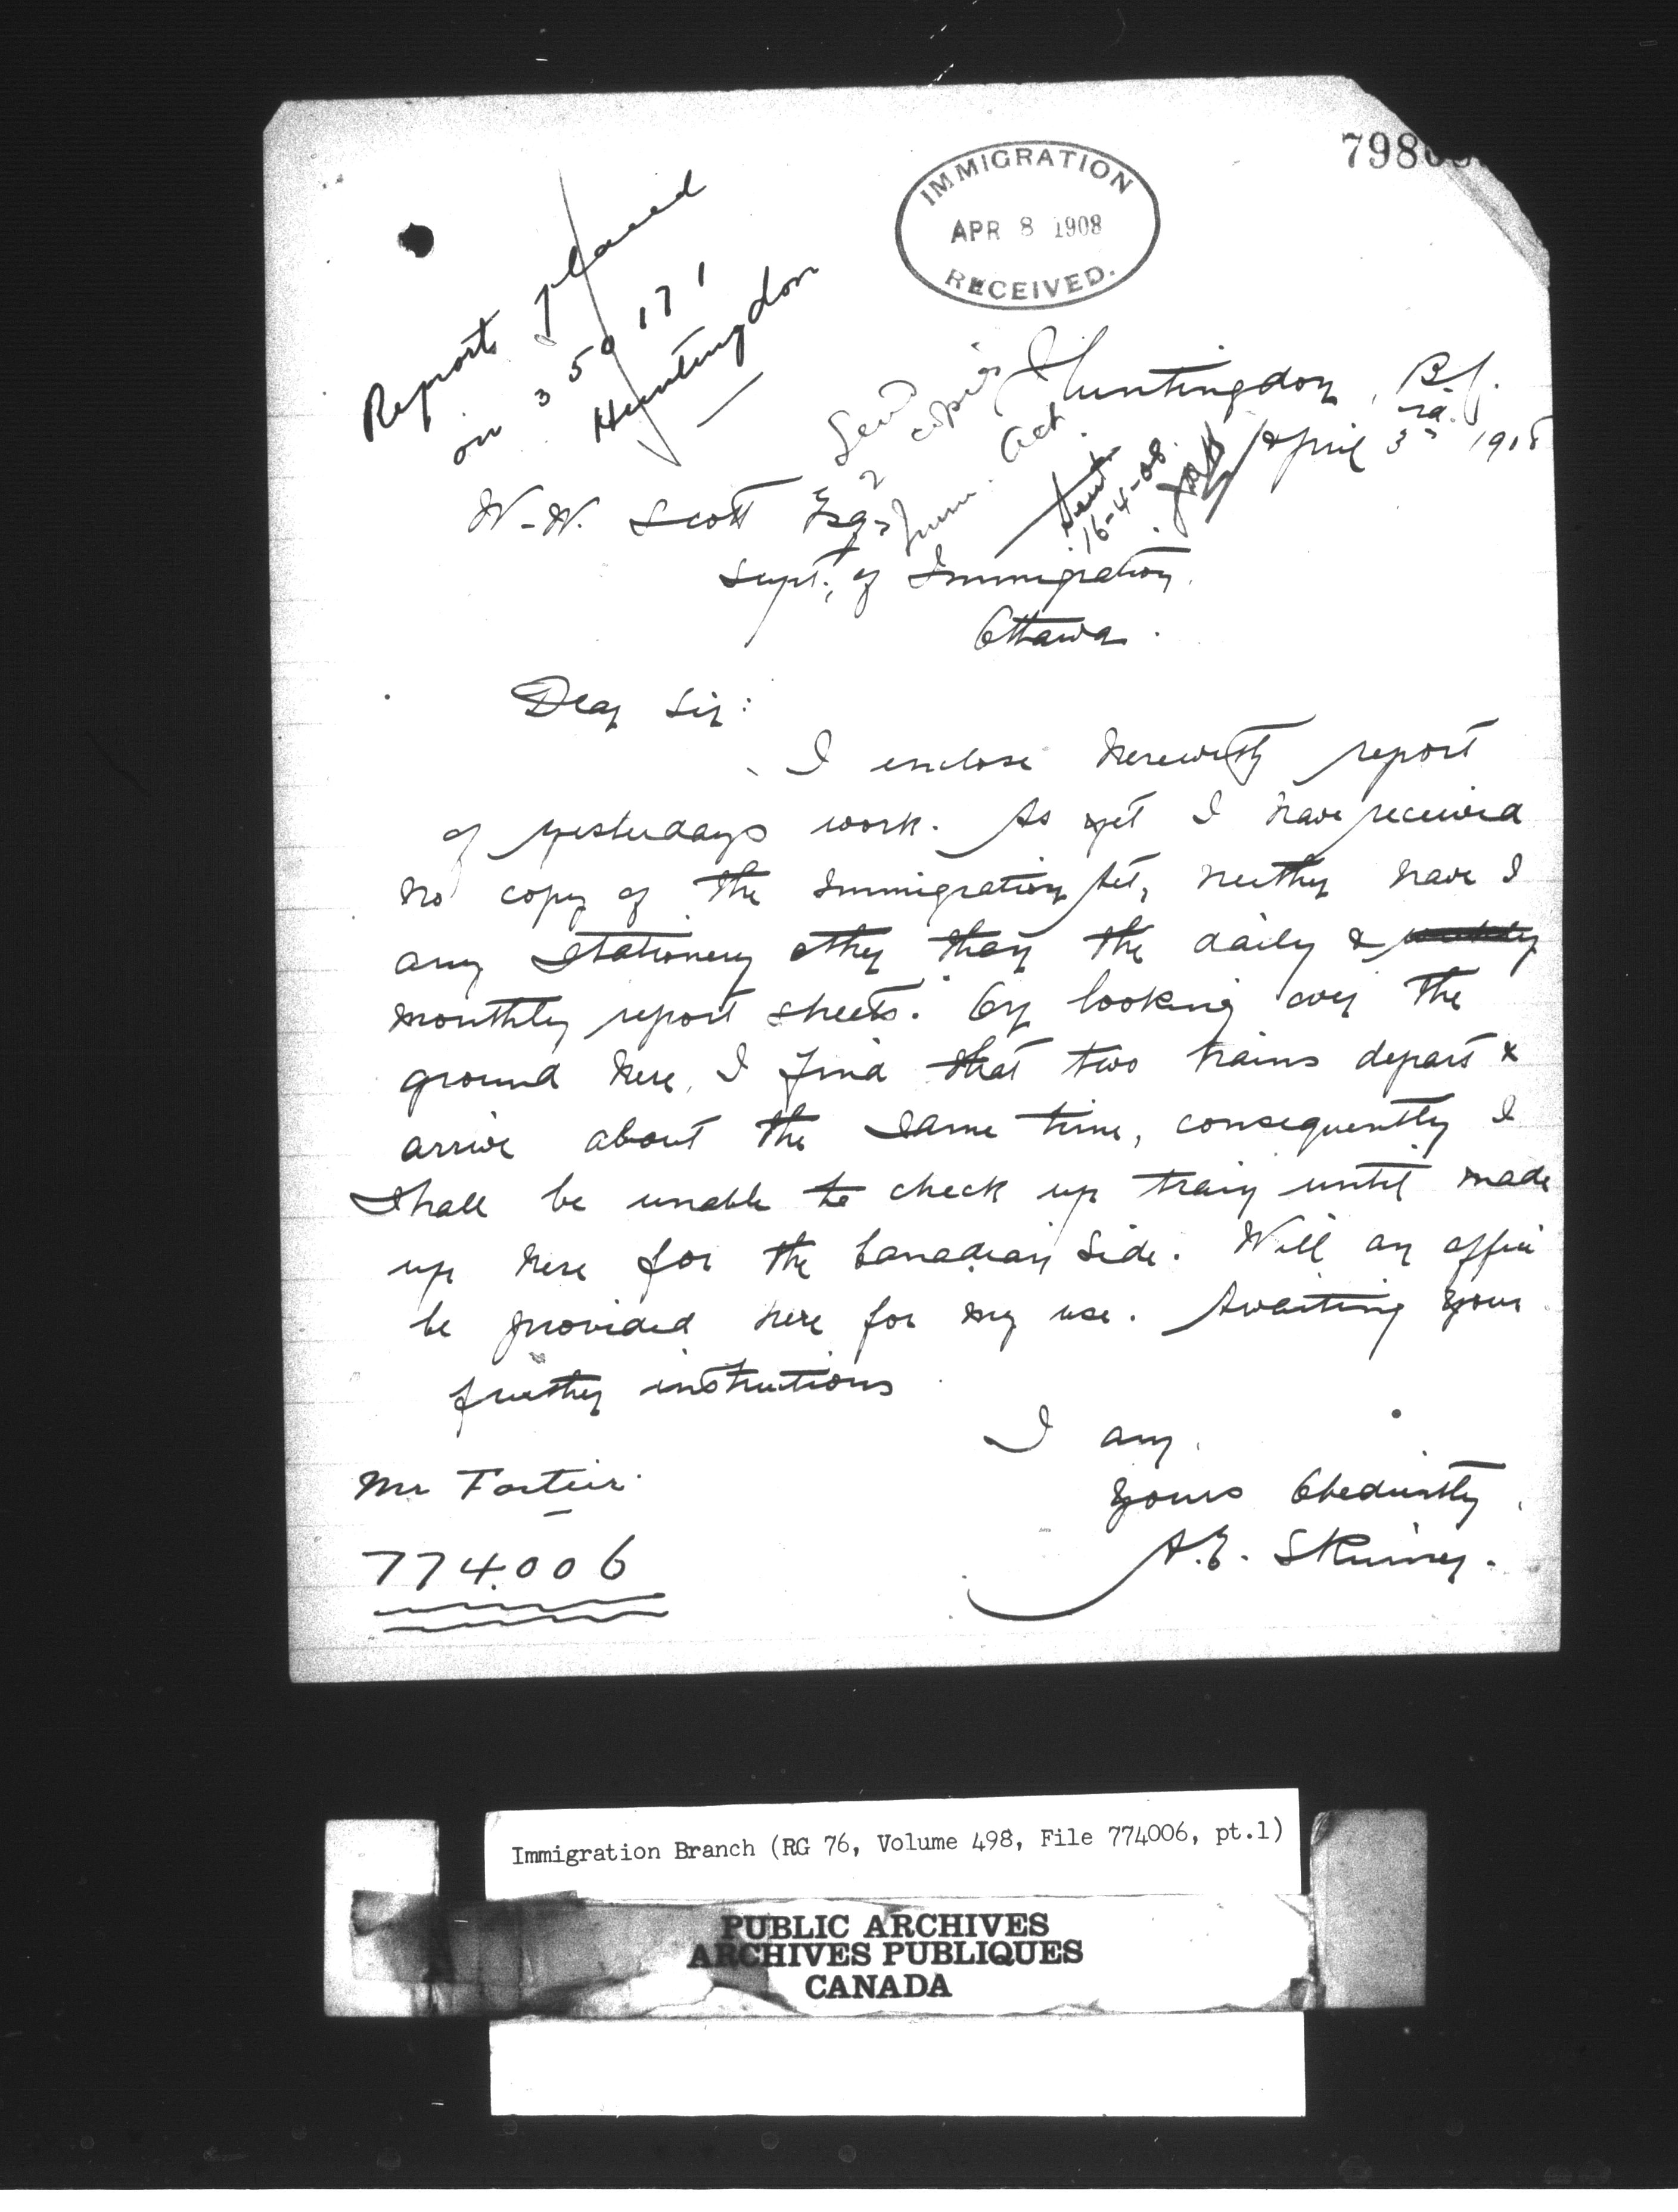 798
IMMIGRATION
APR 8 1908
RECEIVED.
Reports placed
on 350171
Huntingdon
Send 2 copies
Imm. Act
Sent
16-4-08.
Huntingdon, B.C.
April 3rd 1908
W. W. Scott Esq.,
Supt. of Immigration.
Ottawa.
Dear Sir:
I enclose herewith report
of yesterdays work. As yet I have received
no copy of the Immigration Act, neither have I
any stationery other than the daily & weekly
monthly report sheets. By looking over the
ground here, I find that two trains depart &
arrive about the same time, consequently I
shall be unable to check up train until made
up here for the Canadian side. Will an office
be provided here for my use. Awaiting your
further instructions
I am,
Yours Obediently,
A.E. Skinner.
Mr Forteir.
774.006
Immigration Branch (RG 76, Volume 498, File 774006, pt.1)
PUBLIC ARCHIVES
ARCHIVES PUBLIQUES
CANADA